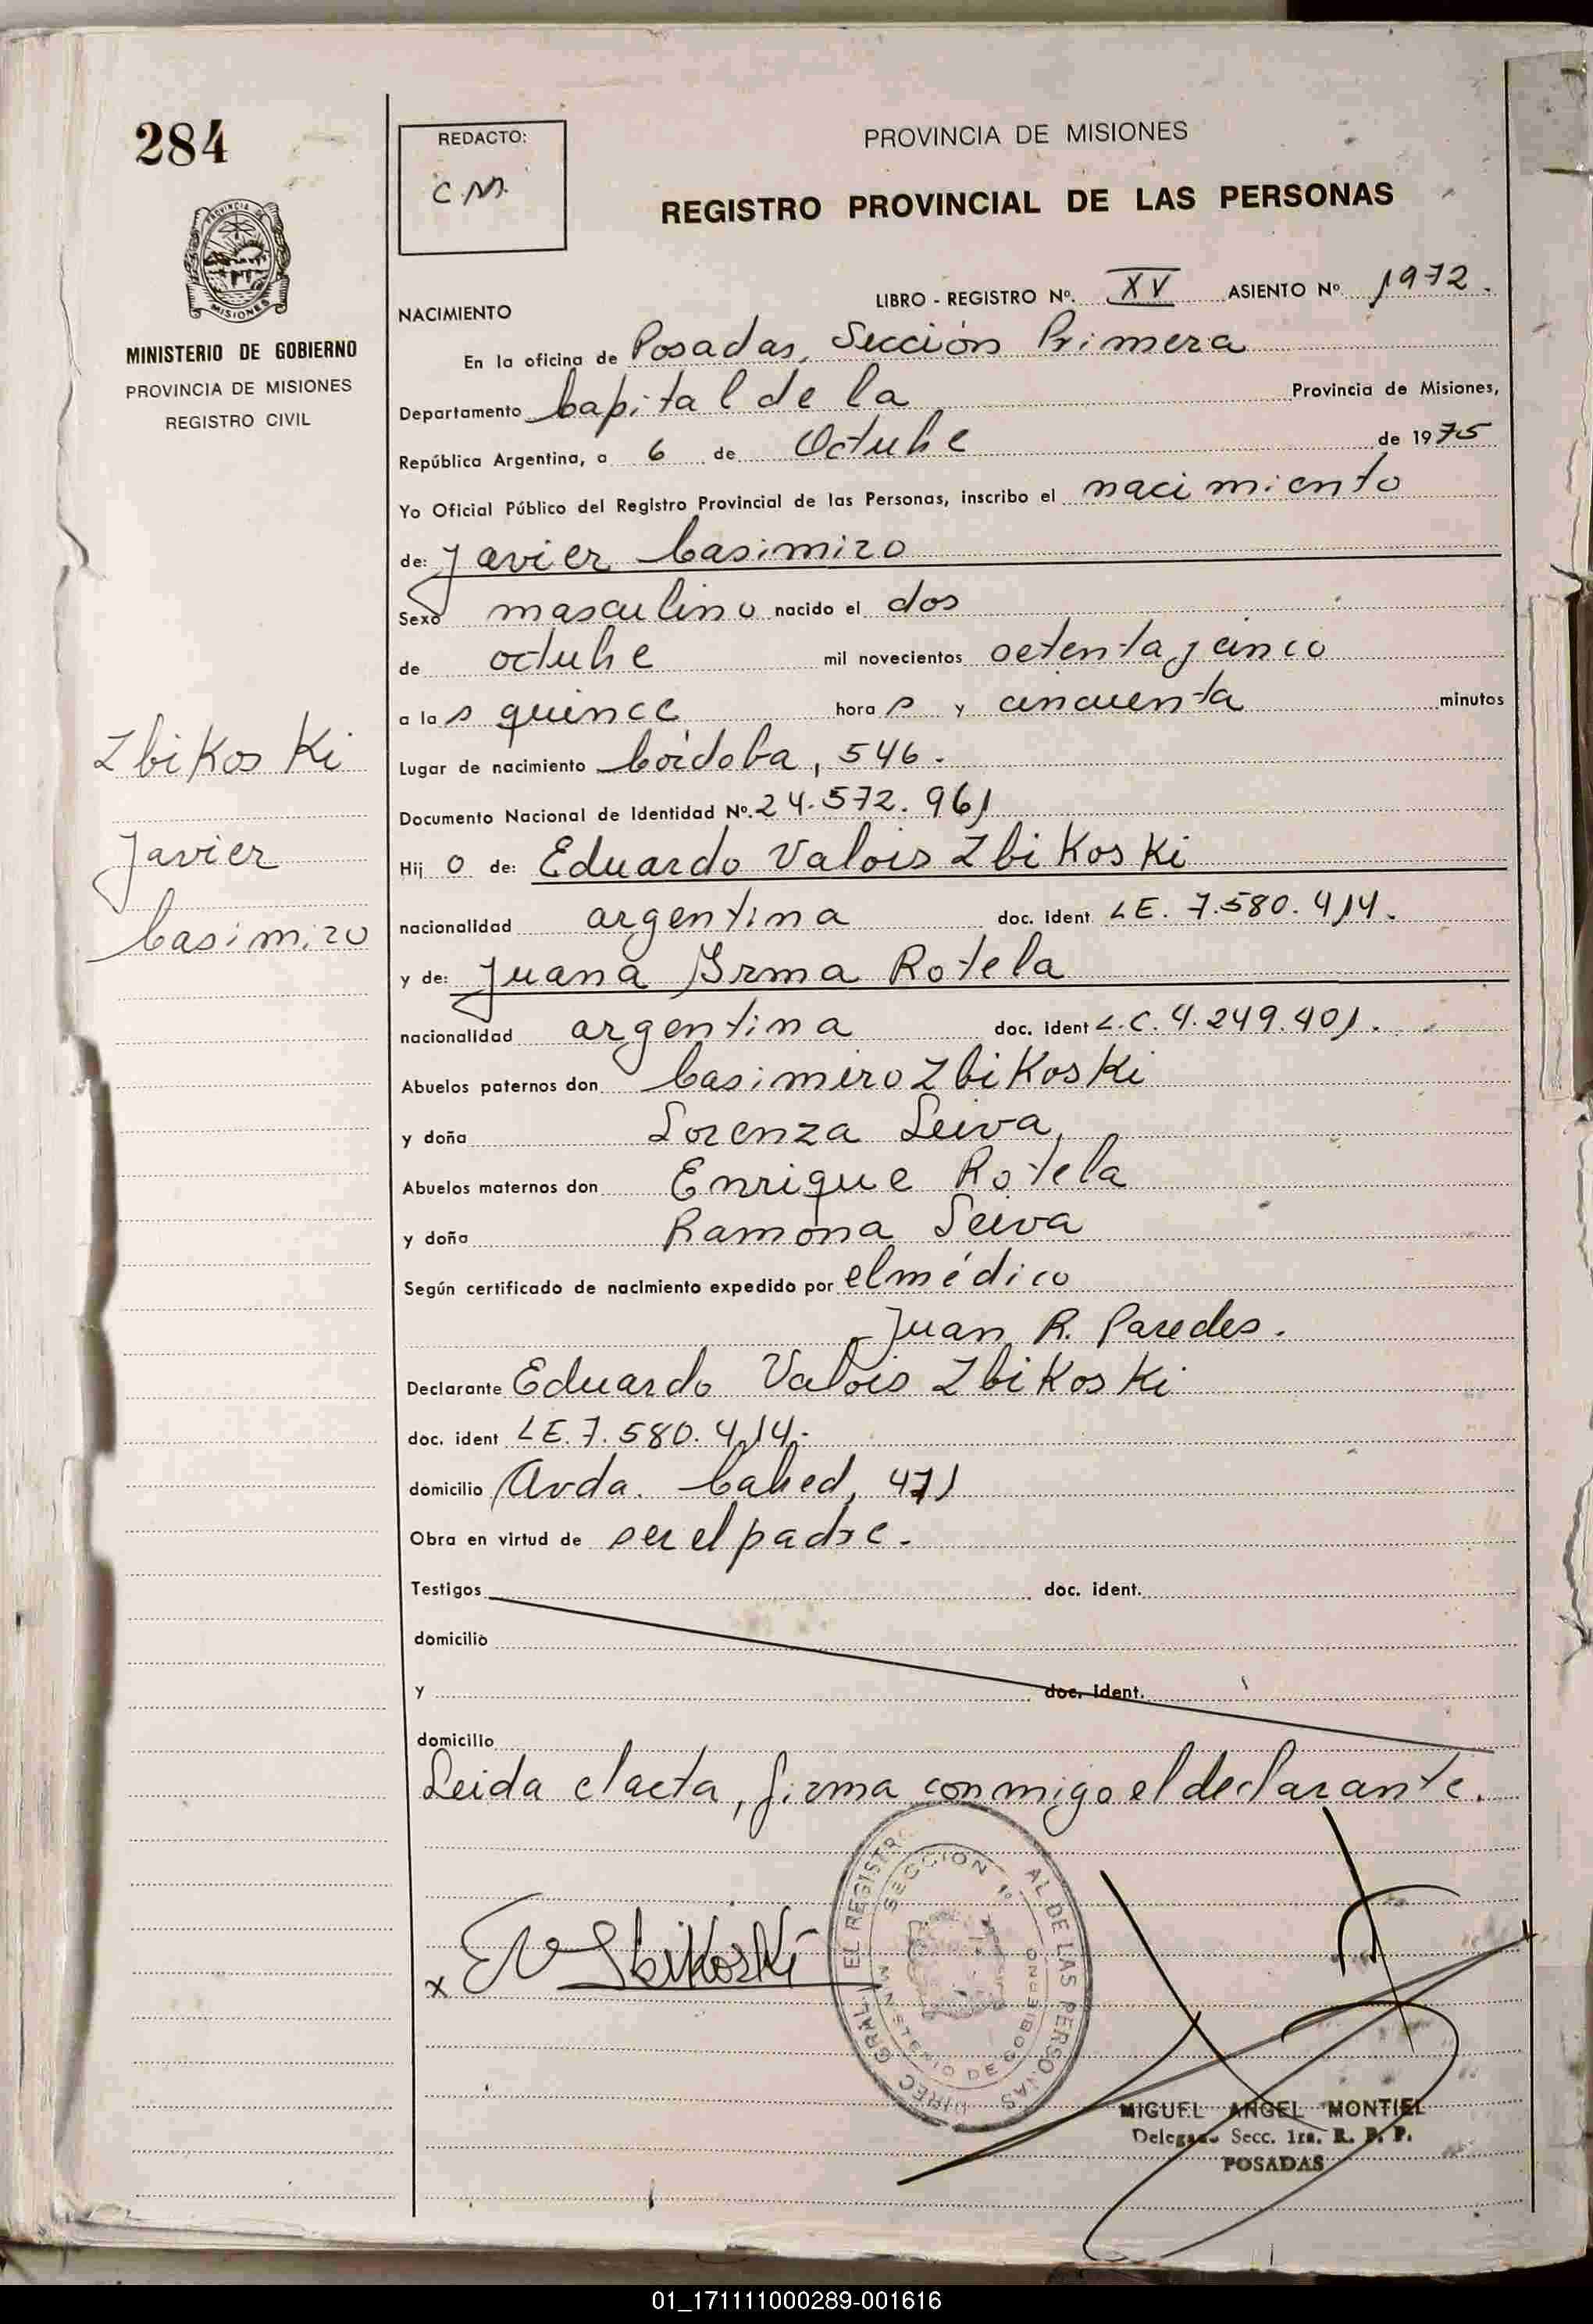 284
PROVINCIA DE
MISIONES
MINISTERIO DE GOBIERNO
PROVINCIA DE MISIONES
REGISTRO CIVIL
Zbikoski
Javier
Casimiro
REDACTO:
C.M.
PROVINCIA DE MISIONES
REGISTRO PROVINCIAL DE LAS PERSONAS
LIBRO - REGISTRO Nº. XV ASIENTO Nº 1972.
NACIMIENTO
En la oficina de Posadas, Sección Primera
Departamento Capital de la Provincia de Misiones,
República Argentina, a 6 de Octubre de 1975
Yo Oficial Público del Registro Provincial de las Personas, inscribo el nacimiento
de: Javier Casimiro
Sexo masculino nacido el dos
de octubre mil novecientos setenta y cinco
a las quince horas y cincuenta minutos
Lugar de nacimiento Córdoba, 546.
Documento Nacional de Identidad Nº. 24.572.961
Hijo de: Eduardo Valois Zbikoski
nacionalidad argentina doc. ident. LE. 7.580.414.
y de: Juana Irma Rotela
nacionalidad argentina doc. ident L.C. 4.249.401.
Abuelos paternos don Casimiro Zbikoski
y doña Lorenza Leiva,
Abuelos maternos don Enrique Rotela
y doña Ramona Leiva
Según certificado de nacimiento expedido por el médico
Juan R. Paredes.
Declarante Eduardo Valois Zbikoski
doc. ident LE. 7.580.414.
domicilio Avda. Cabred, 471
Obra en virtud de ser el padre.
Testigos doc. ident.
domicilio
y doc. ident.
domicilio
Leida el acta, firma conmigo el declarante.
x EV Zbikoski
DIREC GRAL EL REGISTRO AL DE LAS PERSONAS
SECCION 1º
MINISTERIO DE GOBIERNO
MIGUEL ANGEL MONTIEL
Delegado Secc. 1ra. R. P. P.
POSADAS
01_171111000289-001616